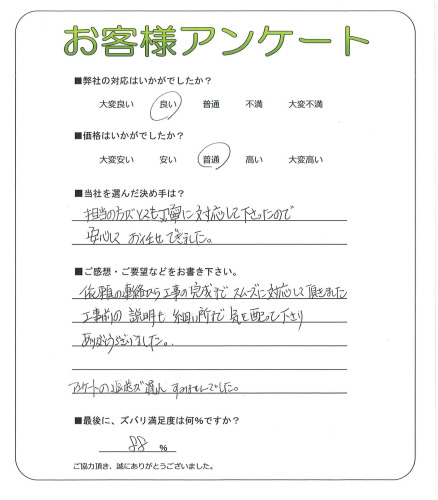 お客様アンケート
■弊社の対応はいかがでしたか？
大変良い 良い 普通 不満 大変不満
■価格はいかがでしたか？
大変安い 安い 普通 高い 大変高い
■当社を選んだ決め手は？
担当の方がとても丁寧に対応して下さったので
安心して お任せできました。
■ご感想・ご要望などをお書き下さい。
依頼の連絡から工事の完成まで スムーズに対応して頂きました
工事前の 説明も 細い所まで 気を配って下さり
ありがとうございました。
アンケートの返送が遅れ すみませんでした。
■最後に、ズバリ満足度は何％ですか？
88 ％
ご協力頂き、誠にありがとうございました。